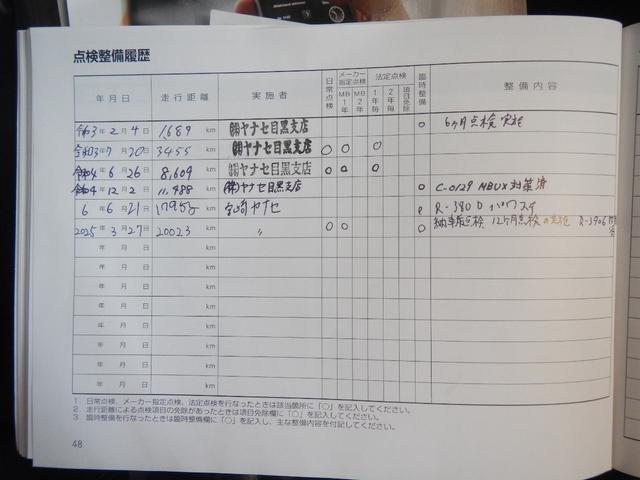 点検整備履歴
年月日 走行距離 実施者 日常点検 メーカー指定点検 MB1年 MB2年 法定点検 1年毎 2年毎 項目免除 臨時整備 整備内容
令和3年2月4日 1,689 km ㈱ヤナセ目黒支店 ○ 6ヶ月点検実施
令和3年7月20日 3455 km ㈱ヤナセ目黒支店 ○ ○ ○
令和4年6月26日 8,609 km ㈱ヤナセ目黒支店 ○ ○ ○
令和4年12月2日 11,488 km ㈱ヤナセ目黒支店 ○ C-0129 MBUX対策済
6年6月21日 km 宮崎ヤナセ ○ R-3800
2025年3月27日 20023 km 〃 ○ ○ ○ 納車前点検 12ヶ月点検 実施 R-3906
年 月 日 km
年 月 日 km
年 月 日 km
年 月 日 km
年 月 日 km
年 月 日 km
年 月 日 km
年 月 日 km
1. 日常点検、メーカー指定点検、法定点検を行なったときは該当箇所に「○」を記入してください。
2. 走行距離による点検項目の免除があったときは項目免除欄に「○」を記入してください。
3. 臨時整備を行なったときは臨時整備欄に「○」を記入し、主な整備内容を付記してください。
48